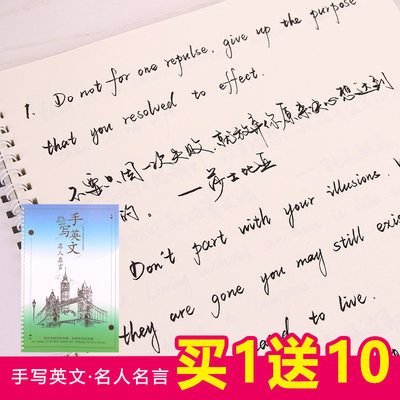 1. Do not for one repulse, give up the purpose
that you resolved to effect.
不要只因一次失败,就放弃你原来决心想达到
的。 —莎士比亚
Don't part with your illusions. W
they are gone you may still exis
to live.
手写英文
名人名言
手写英文·名人名言
买1送10